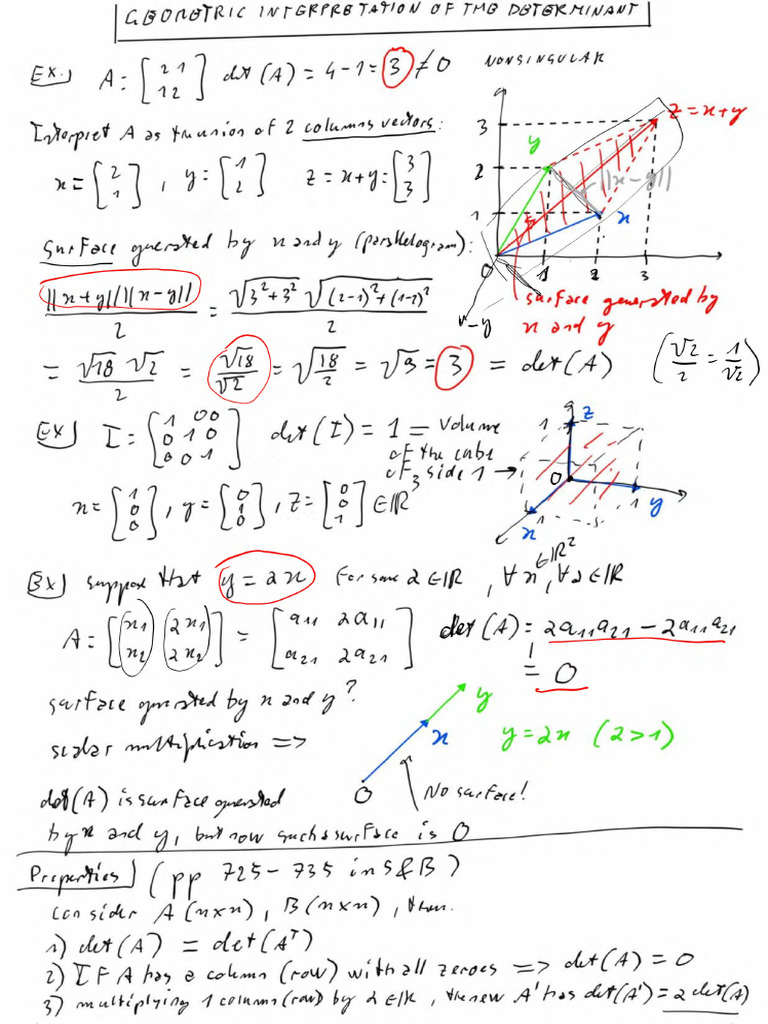 GEOMETRIC INTERPRETATION OF THE DETERMINANT
EX.) A = [2 1; 1 2] det(A) = 4-1 = 3 ≠ 0 NONSINGULAR
Interpret A as the union of 2 columns vectors:
x = [2; 1], y = [1; 2] z = x+y = [3; 3]
3
2
1
0
1 2 3
y
z = x+y
||x-y||
x
-y
surface generated by
x and y
Surface generated by x and y (parallelogram):
||x+y|| ||x-y|| / 2 = √3²+3² √(2-1)²+(1-2)² / 2
= √18 √2 / 2 = √18 / √2 = √18/2 = √9 = 3 = det(A) (√2/2 = 1/√2)
EX) I = [1 0 0; 0 1 0; 0 0 1] det(I) = 1 = volume
of the cube
of side 1 →
x = [1; 0; 0], y = [0; 1; 0], z = [0; 0; 1] ∈ ℝ³
z
1
0
1
y
1
x
EX) suppose that y = 2x For some 2 ∈ ℝ, ∀ x ∈ ℝ², ∀ 2 ∈ ℝ
A = [x1 2x1; x2 2x2] = [a11 2a11; a21 2a21] det(A) = 2a11a21 - 2a11a21
= 0
surface generated by x and y?
scalar multiplication =>
0 x y
y = 2x (2>1)
No surface!
det(A) is surface generated
by x and y, but now such a surface is 0
Properties) (pp 725-735 in S&B)
Consider A (n×n), B (n×n), then:
1) det(A) = det(Aᵀ)
2) IF A has a column (row) with all zeroes => det(A) = 0
3) multiplying 1 column (row) by 2 ∈ ℝ, the new A' has det(A') = 2 det(A)